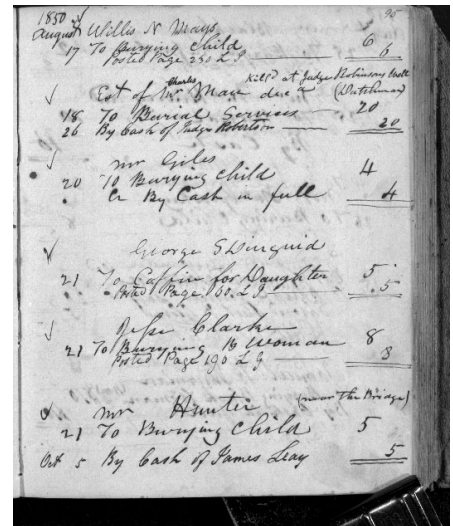 1850 95
August Willis N Mays
17 To Burying Child 6
Posted Page 230 L J 6
Charles Kill'd at Judge Robinsons
Est of Mr May dec'd (Dutchman)
18 To Burial Services 20
26 By Cash of Judge Robertson 20
Mr Giles
20 To Burying Child 4
Cr By Cash in full 4
George S Dinguid
21 To Coffin for Daughter 5
Posted Page 60 L J 5
Jesse Clarke
21 To Burying B Woman 8
Posted Page 190 L J 8
Mr Hunter (near the Bridge)
21 To Burying Child 5
Oct 5 By Cash of James Leay 5